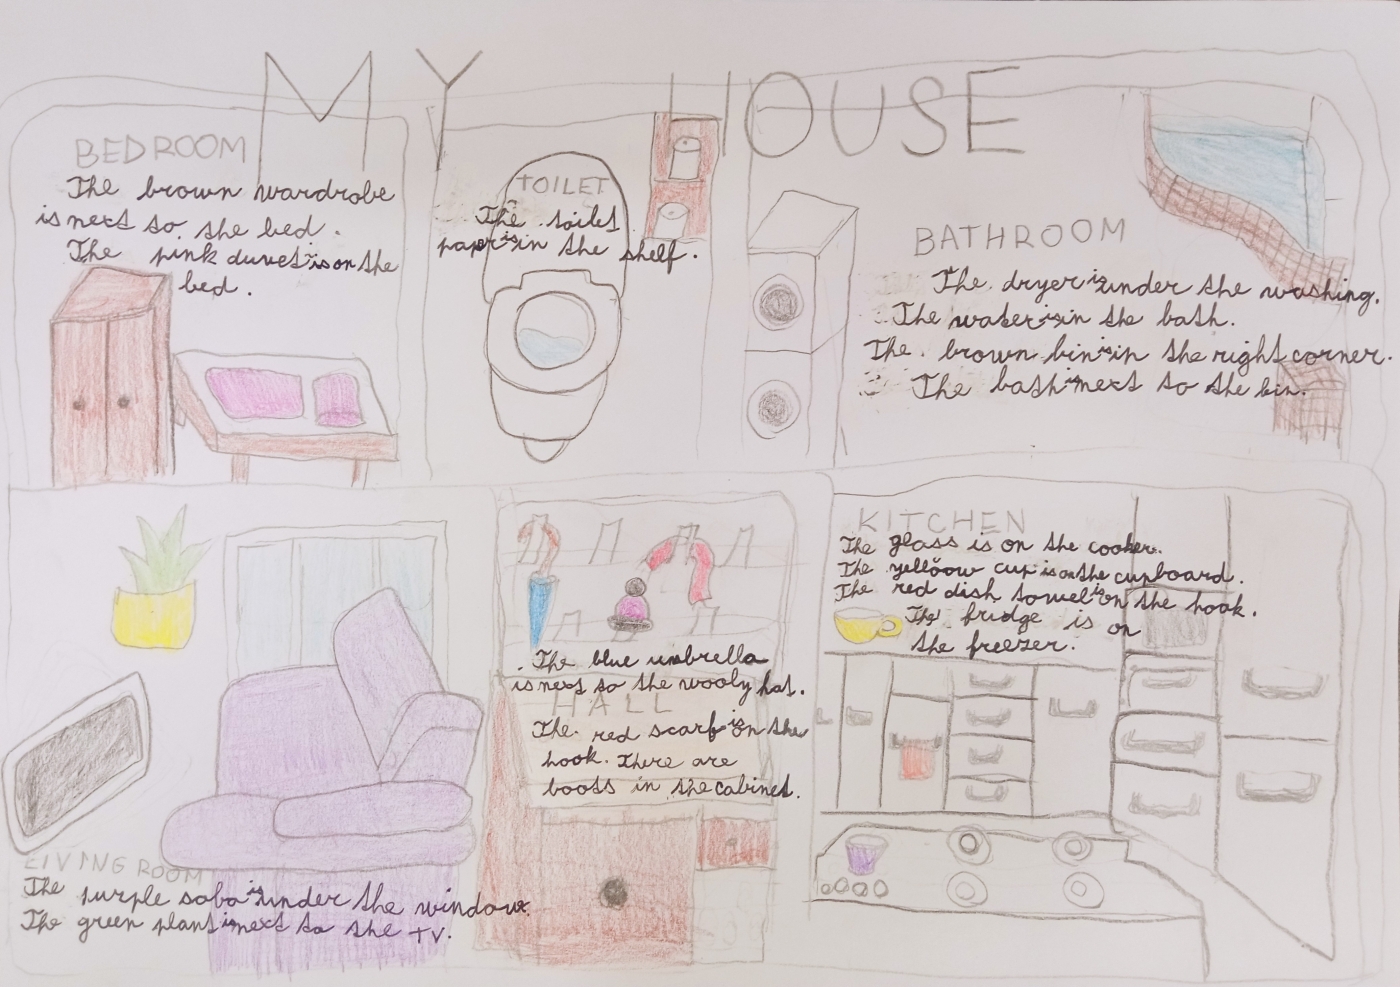 MY HOUSE
BEDROOM
The brown wardrobe
is next to the bed.
The pink duvet is on the
bed.
TOILET
The toilet
paper is in the shelf.
BATHROOM
The dryer is under the washing.
The water is in the bath.
The brown bin is in the right corner.
The bath is next to the bin.
LIVING ROOM
The purple soba is under the window.
The green plant is next to the TV.
HALL
The blue umbrella
is next to the wooly hat.
The red scarf is on the
hook. There are
boots in the cabinet.
KITCHEN
The glass is on the cooker.
The yelloow cup is on the cupboard.
The red dish towel is on the hook.
The fridge is on
the freezer.